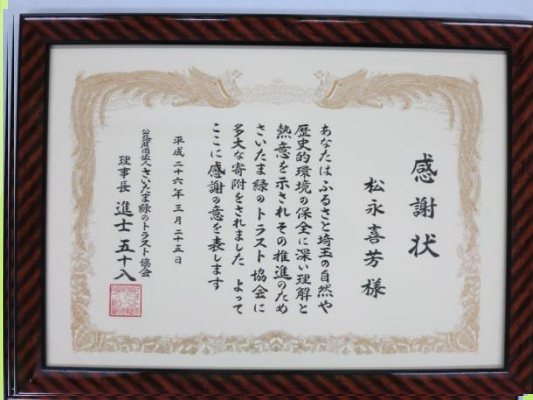 感謝状
松永喜芳様
あなたはふるさと埼玉の自然や
歴史的環境の保全に深い理解と
熱意を示されその推進のため
さいたま緑のトラスト協会に
多大な寄附をされました よって
ここに感謝の意を表します
平成二十六年三月二十五日
公益財団法人さいたま緑のトラスト協会
理事長 進士五十八